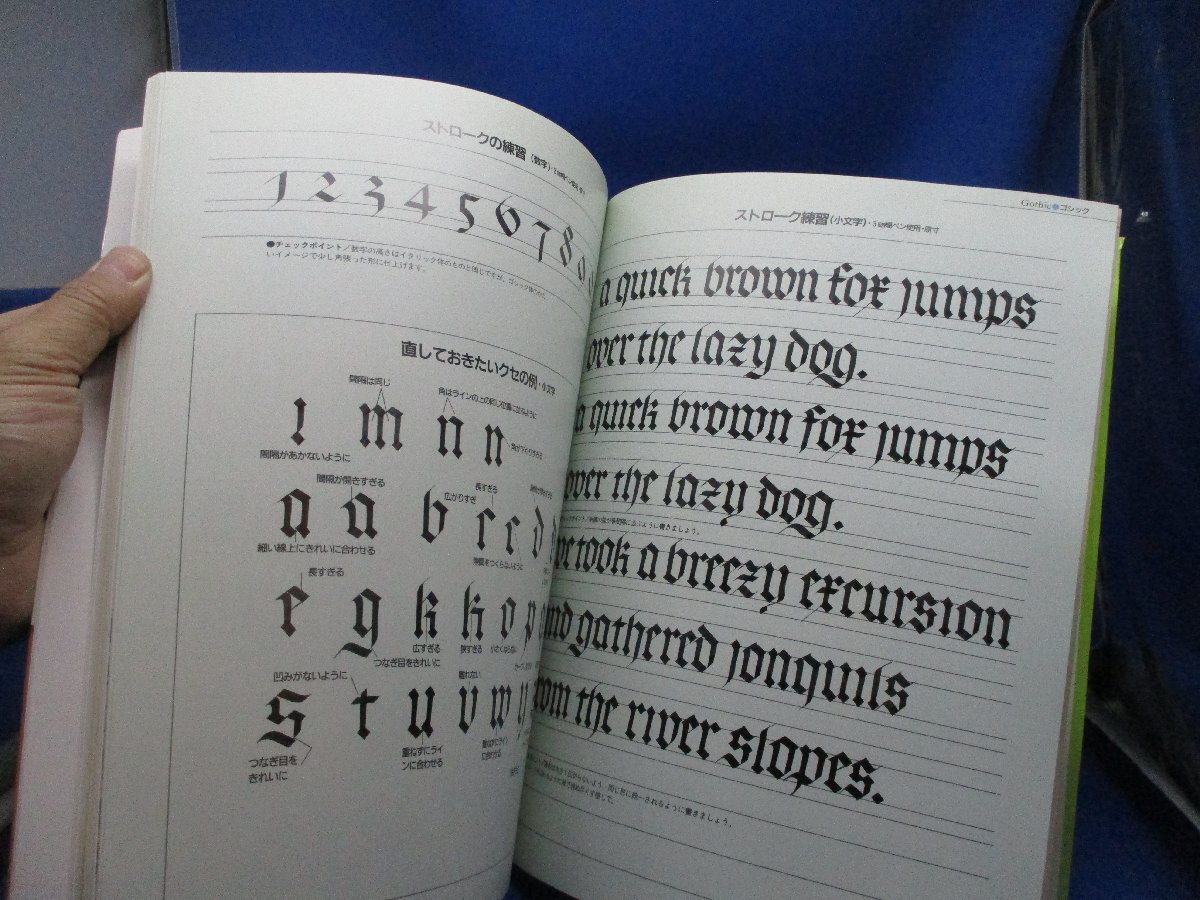 ストロークの練習(数字)
1 2 3 4 5 6 7 8
●チェックポイント/数字の高さはイタリック体のものと同じですが、ゴシック体
いイメージで少し角張った形に仕上げます。
直しておきたいクセの例・小文字
間隔は同じ
角はラインの上の同じ位置に
i m n n
間隔があかないように
間隔が開きすぎる
広がりすぎ
長すぎる
a a b r r d
細い線上にきれいに合わせる
隙間をつくらないように
長すぎる
e g k k o p
つなぎ目をきれいに
広すぎる
狭すぎる
凹みがないように
離れない
s t u v w y
つなぎ目を
きれいに
重ねずにライ
ンに合わせる
Gothic●ゴシック
ストローク練習(小文字)・5ミリ幅ペン使用・原寸
a quick brown fox jumps
over the lazy dog.
a quick brown fox jumps
over the lazy dog.
took a breezy excursion
and gathered jonquils
from the river slopes.
同じ形に統一されるように書きましょう。